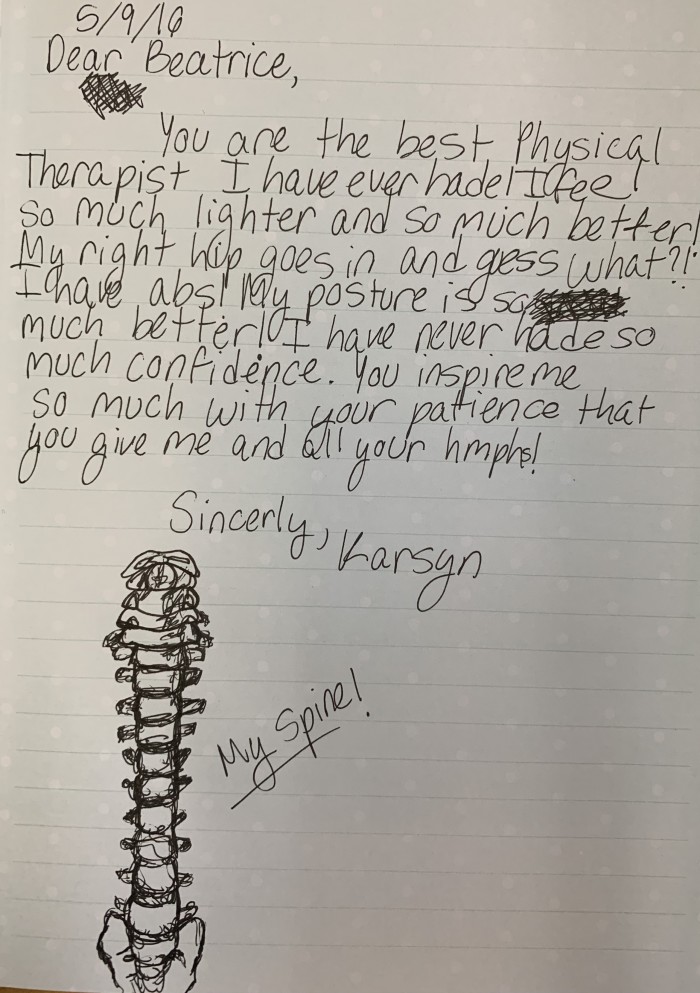 5/9/16
Dear Beatrice,
You are the best Physical
Therapist I have ever hade! I feel
so much lighter and so much better!
My right hip goes in and gess what?!
I have abs! My posture is so
much better! I have never hade so
much confidence. You inspire me
so much with your patience that
you give me and all your hmphs!
Sincerly,
Karsyn
My Spine!